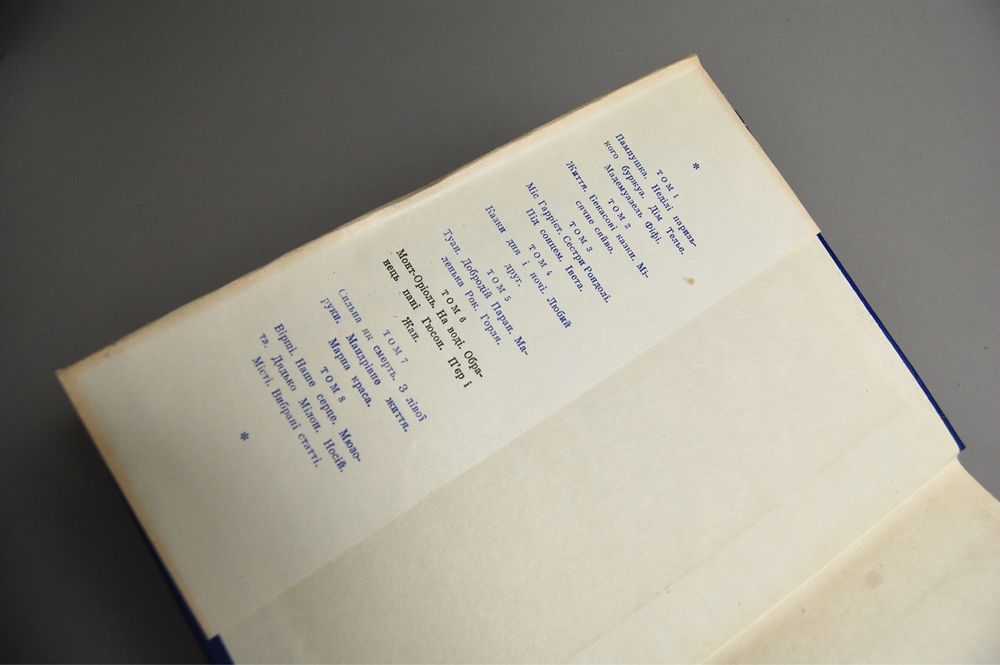 *
ТОМ 1
Пампушка. Неділі паризь-
кого буржуа. Дім Тельє.
Мадемуазель Фіфі.
ТОМ 2
Життя. Бекасові казки. Мі-
сячне сяйво.
ТОМ 3
Міс Гаррієт. Сестри Рондолі.
Під сонцем. Івета.
ТОМ 4
Казки дня і ночі. Любий
друг.
ТОМ 5
Туан. Добродій Паран. Ма-
ленька Рок. Горля.
ТОМ 6
Монт-Оріоль. На воді. Обра-
нець пані Гюсон. П'єр і
Жан.
ТОМ 7
Сильна як смерть. З лівої
руки. Мандрівне життя.
Марна краса.
ТОМ 8
Вірші. Наше серце. Мюзо-
та. Дядько Мілон. Носій.
Місті. Вибрані статті.
*